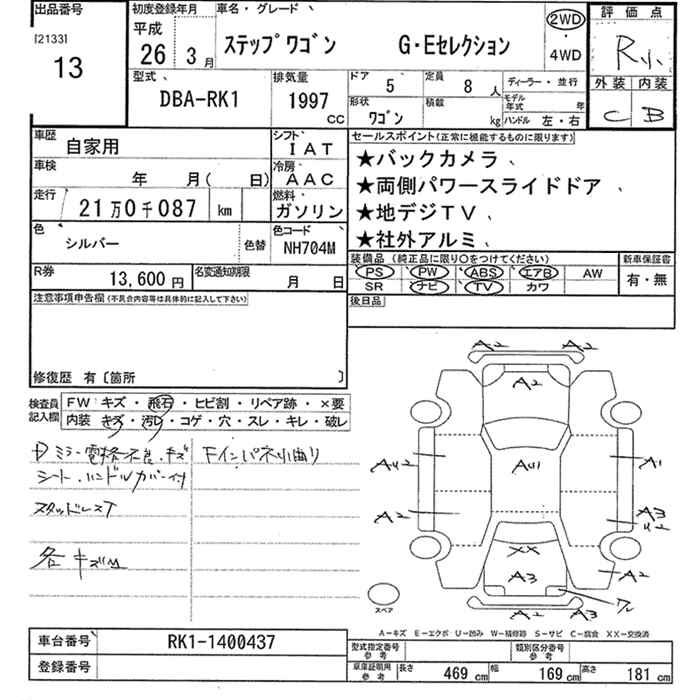 出品番号
[2133]
13
初度登録年月
平成
26 3月
車名・グレード
ステップワゴン G・Eセレクション
2WD
・
4WD
評価点
R小
外装 内装
C B
型式
DBA-RK1
排気量
1997
CC
ドア
5
定員
8 人
形状
ワゴン
積載
kg
ディーラー・並行
モデル年式 年
ハンドル 左・右
車歴
自家用
シフト
IAT
車検
年 月( 日)
冷房
AAC
走行
21万0千087 km
燃料
ガソリン
色
シルバー
色替
色コード
NH704M
R券
13,600円
名変通知期限
月 日
セールスポイント(正常に機能するものに限ります)
★バックカメラ、
★両側パワースライドドア、
★地デジTV、
★社外アルミ、
装備品(純正品に限り〇をつけてください)
PS PW ABS エアB AW
SR ナビ TV カワ
新車保証書
有・無
後日品
注意事項申告欄(不具合内容等は具体的に記入して下さい)
修復歴 有〔箇所 〕
検査員記入欄
FW キズ・飛石・ヒビ割・リペア跡・×要
内装 キズ・汚レ・コゲ・穴・スレ・キレ・破レ
Dミラー電格不良.キズ
Fインパネ小曲り
シート.ハンドルカバー付
スタッドレスT
各キズM
A2 A2
A2
AU2
AU1
A1
A2
A3
U2
XX
A3
A2
A2 A3
スペア
A-キズ E-エクボ U-凹み W-補修跡 S-サビ C-腐食 XX-交換済
車台番号
RK1-1400437
登録番号
型式指定番号
参考
類別区分番号
参考
車庫証明用
参考
長さ 469 cm
幅 169 cm
高さ 181 cm